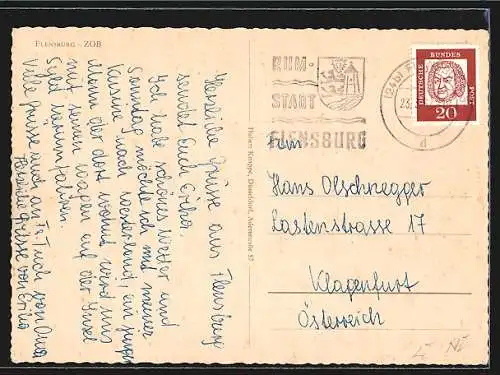 FLENSBURG - ZOB
Herzliche Grüsse aus Flensburg
sendet Euch Erika.
Ich habe schönes Wetter und
Sonntags möchte ich mit meiner
Kusine nach Westerland, ein junger
Mann der dort wohnt wird uns
mit seinem Wagen auf der Insel
Sylt herumfahren.
Viele Grüsse auch an Fr. von Oma
Herzliche Grüsse von Erika
Hans Kruse, Düsseldorf, Adersstraße 57
RUM-
STADT
FLENSBURG
(24b) FL
23.
d
DEUTSCHE BUNDES POST
20
Herrn
Hans Olschnegger
Lastenstrasse 17
Klagenfurt
Österreich